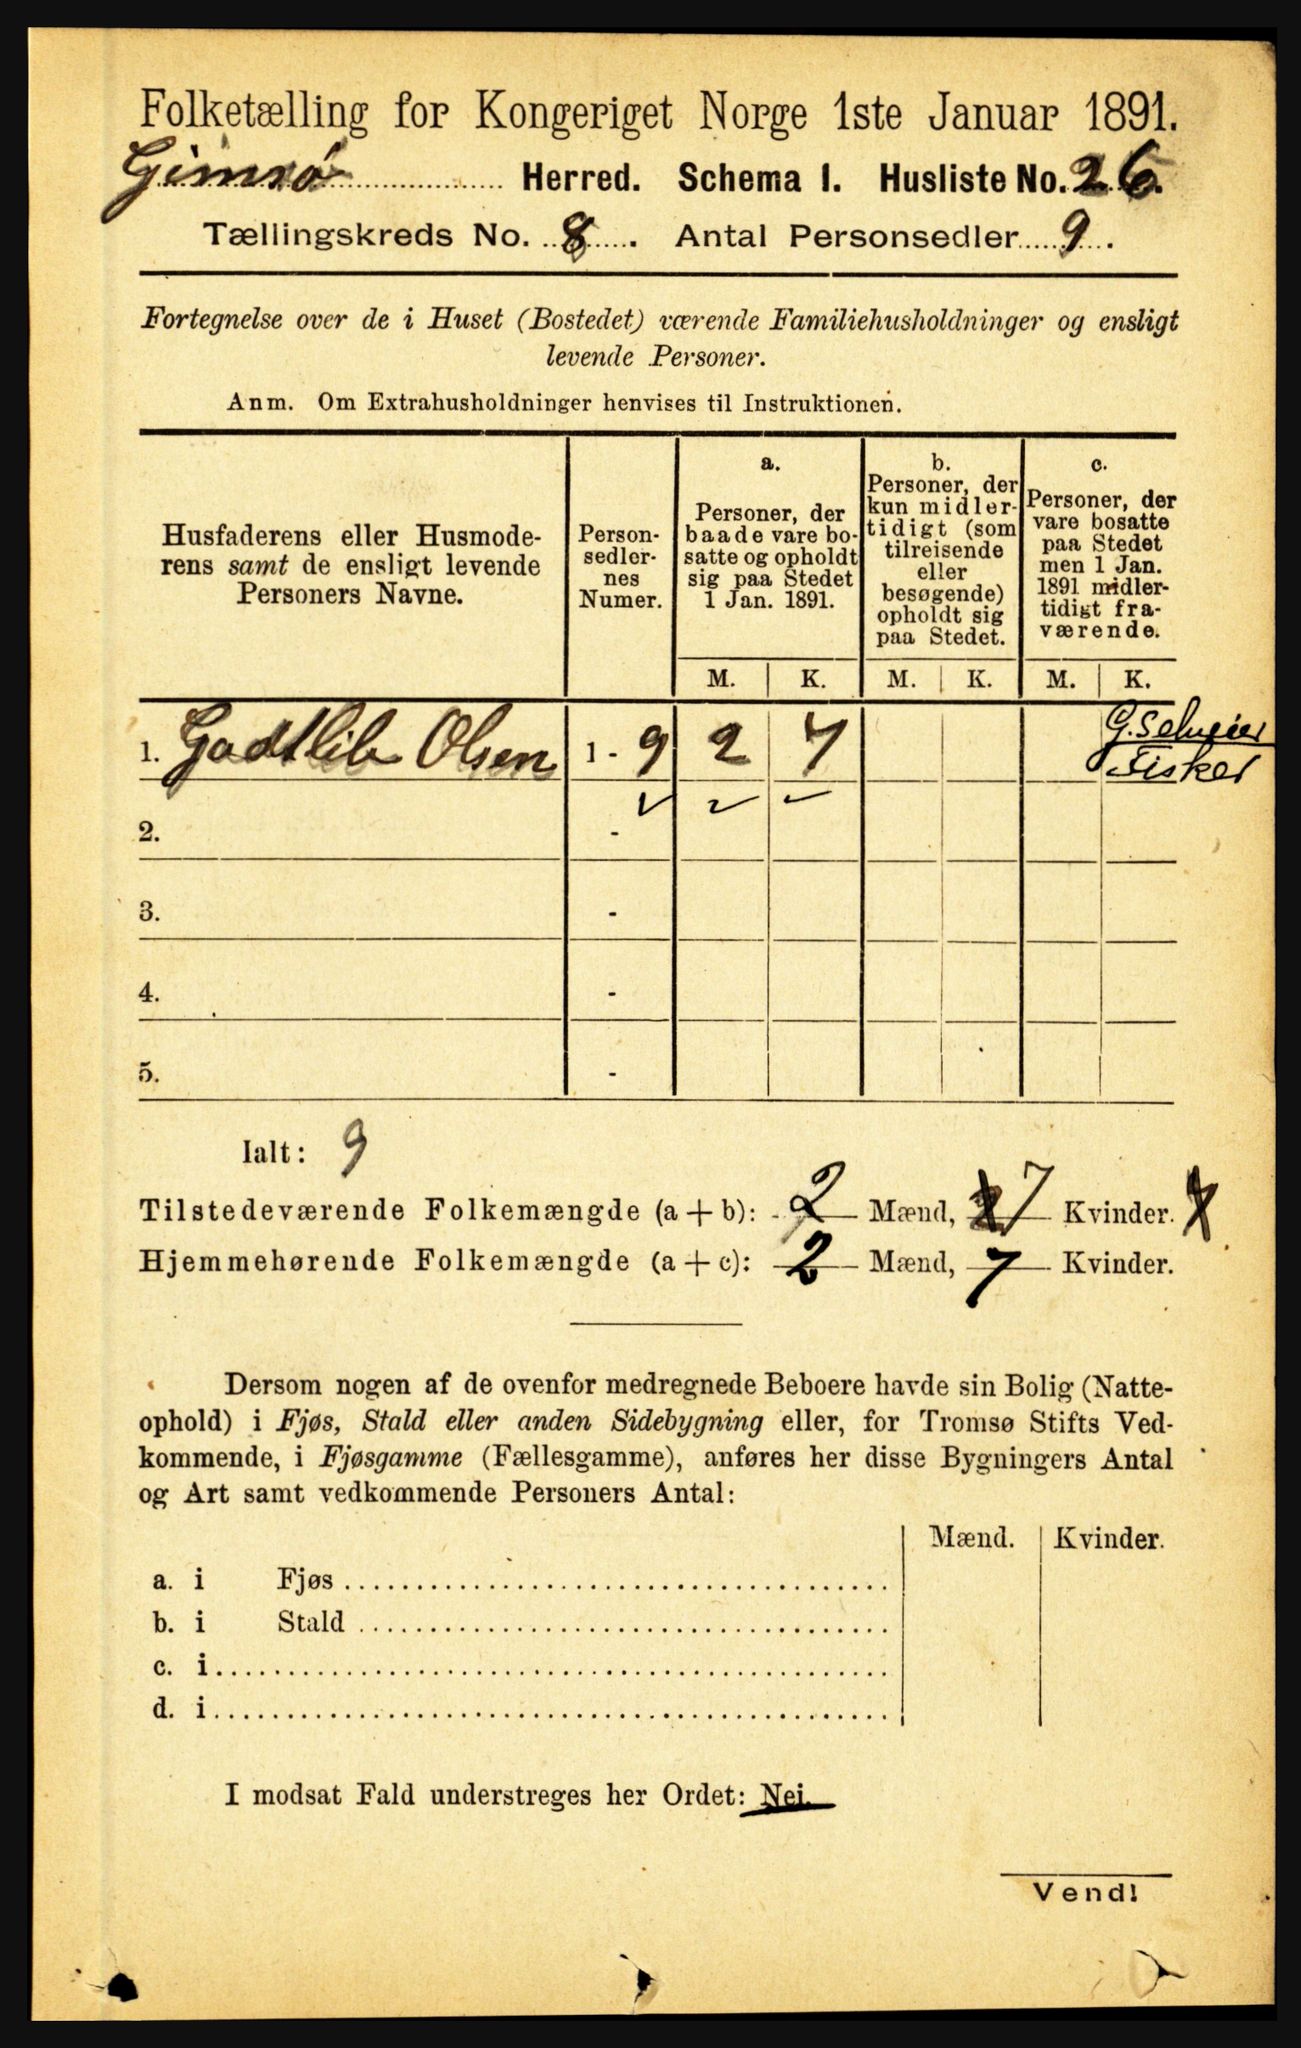 Folketælling for Kongeriget Norge 1ste Januar 1891.
Gimsø Herred. Schema 1. Husliste No. 26.
Tællingskreds No. 8. Antal Personsedler 9.
Fortegnelse over de i Huset (Bostedet) værende Familiehusholdninger og ensligt
levende Personer.
Anm. Om Extrahusholdninger henvises til Instruktionen.
Husfaderens eller Husmode-
rens samt de ensligt levende
Personers Navne.
Person-
sedler-
nes
Numer.
a.
Personer, der
baade vare bo-
satte og opholdt
sig paa Stedet
1 Jan. 1891.
b.
Personer, der
kun midler-
tidigt (som
tilreisende
eller
besøgende)
opholdt sig
paa Stedet.
c.
Personer, der
vare bosatte
paa Stedet
men 1 Jan.
1891 midler-
tidigt fra-
værende.
M. K. M. K. M. K.
1. Godtlib Olsen 1 - 9 2 7 G. Selveier
Fisker
2. -
3. -
4. -
5. -
Ialt: 9
Tilstedeværende Folkemængde (a + b): 2 Mænd, 7 Kvinder.
Hjemmehørende Folkemængde (a + c): 2 Mænd, 7 Kvinder.
Dersom nogen af de ovenfor medregnede Beboere havde sin Bolig (Natte-
ophold) i Fjøs, Stald eller anden Sidebygning eller, for Tromsø Stifts Ved-
kommende, i Fjøsgamme (Fællesgamme), anføres her disse Bygningers Antal
og Art samt vedkommende Personers Antal:
Mænd. Kvinder.
a. i Fjøs
b. i Stald
c. i
d. i
I modsat Fald understreges her Ordet: Nei.
Vend!